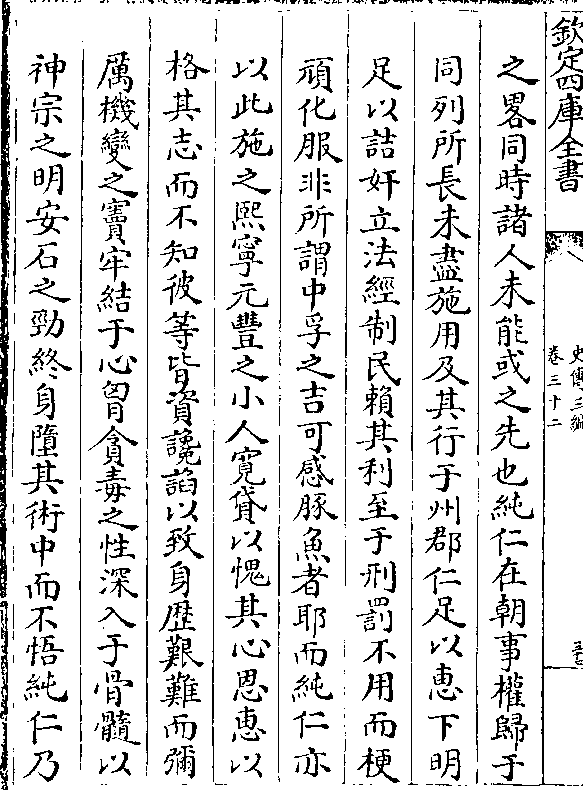 欽定四庫全書
史傳三編
卷三十二
之畧同時諸人未能或之先也純仁在朝事權歸于
同列所長未盡施用及其行于州郡仁足以惠下明
足以詰奸立法經制民賴其利至于刑罰不用而梗
頑化服非所謂中孚之吉可感豚魚者耶而純仁亦
以此施之熙寧元豐之小人寛貸以愧其心恩惠以
格其志而不知彼等皆資讒謟以致身歴艱難而彌
厲機變之竇牢結于心胷貪毒之性深入于骨髓以
神宗之明安石之勁終身墮其術中而不悟純仁乃